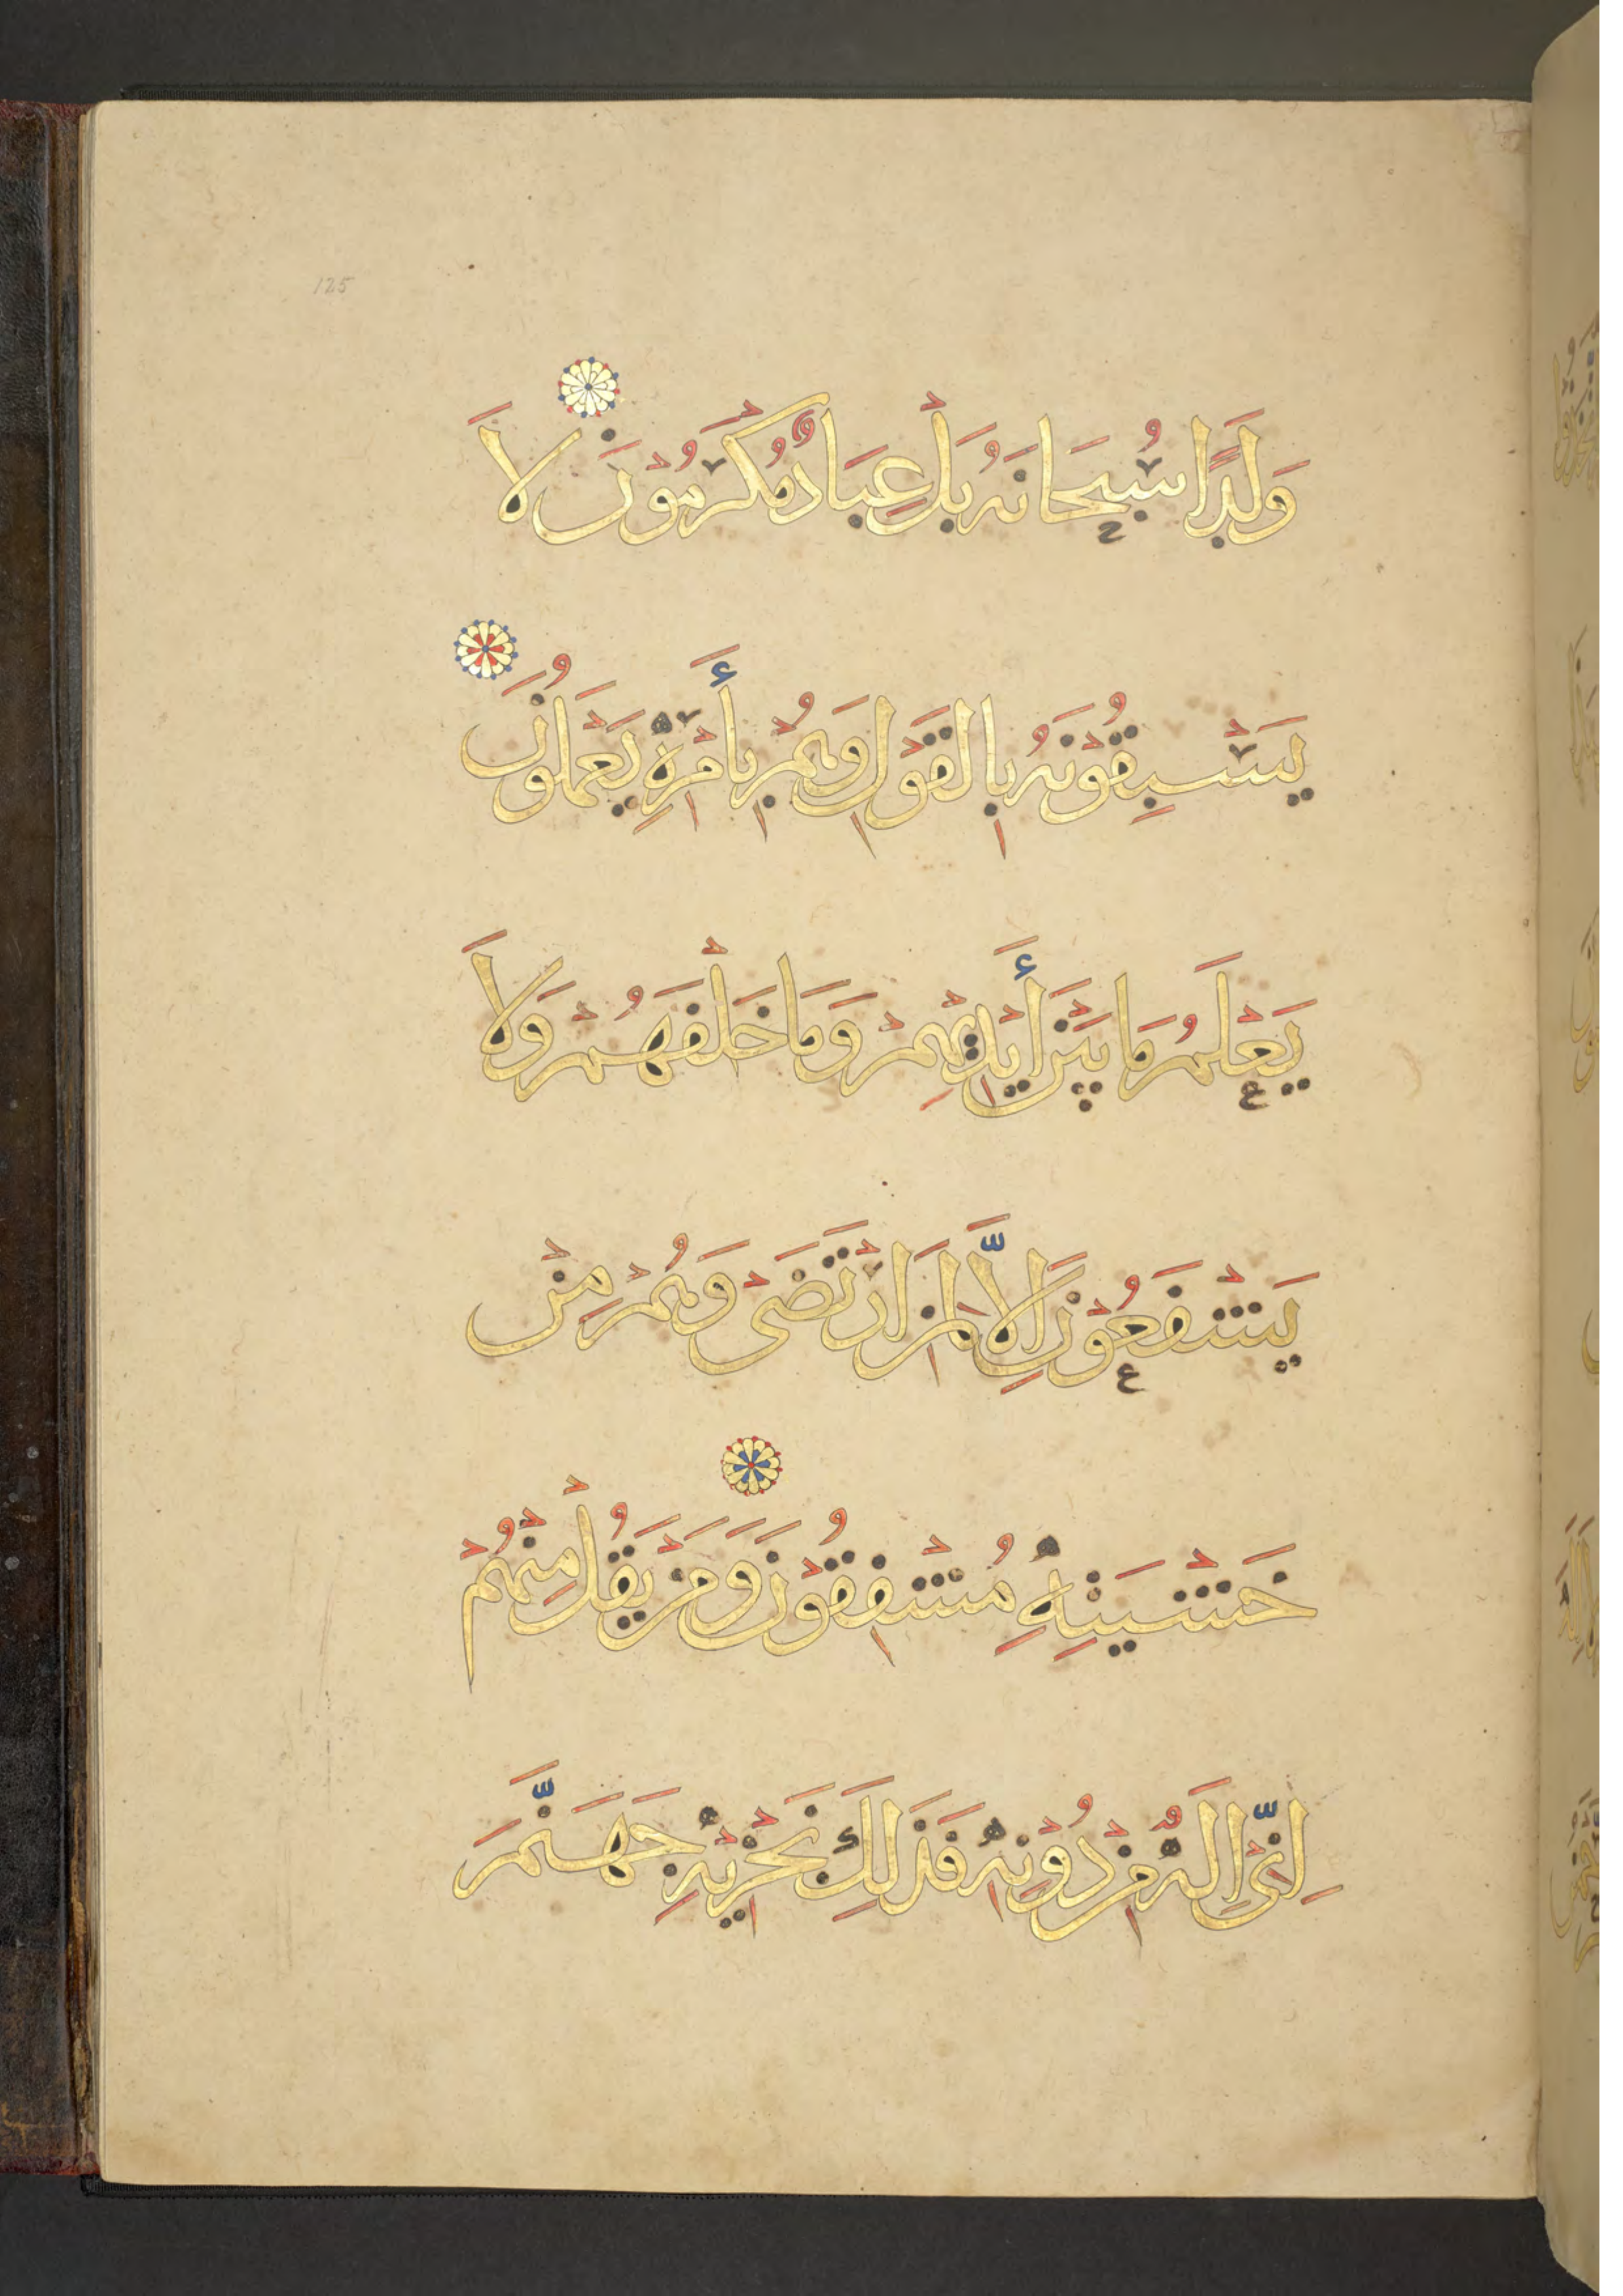 125
وَلَدًا سُبْحَانَهُ بَلْ عِبَادٌ مُكْرَمُوْنَ لَا
يَسْبِقُوْنَهُ بِالْقَوْلِ وَهُمْ بِأَمْرِهِ يَعْمَلُوْنَ
يَعْلَمُ مَا بَيْنَ أَيْدِيْهِمْ وَمَا خَلْفَهُمْ وَلَا
يَشْفَعُوْنَ اِلَّا لِمَنِ ارْتَضَىْ وَهُمْ مِنْ
خَشْيَتِهِ مُشْفِقُوْنَ وَمَنْ يَقُلْ مِنْهُمْ
اِنِّىْ اِلَهٌ مِنْ دُوْنِهِ فَذَلِكَ نَجْزِيْهِ جَهَنَّمَ